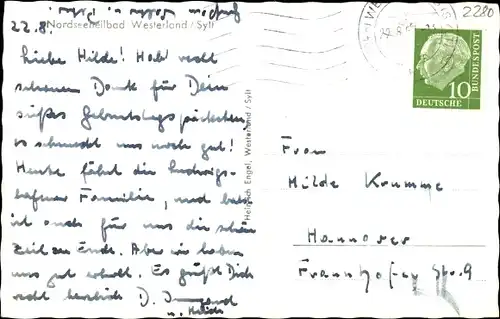 22.8.
Nordseeheilbad Westerland / Sylt
Liebe Hilde! Hab recht
schönen Dank für Dein
süßes Geburtstagspäckchen,
es schmeckt uns noch gut!
Heute fährt die Ludwigs-
hafener Familie, und bald
ist auch für uns die schöne
Zeit zu Ende. Aber wir haben
uns gut erholt. Es grüßt Dich
recht herzlich D. Irmgard
Heinrich Engel, Westerland / Sylt
2280
DEUTSCHE
BUNDESPOST
10
Frau
Hilde Krumme
Hannover
Fraunhofer Str. 9